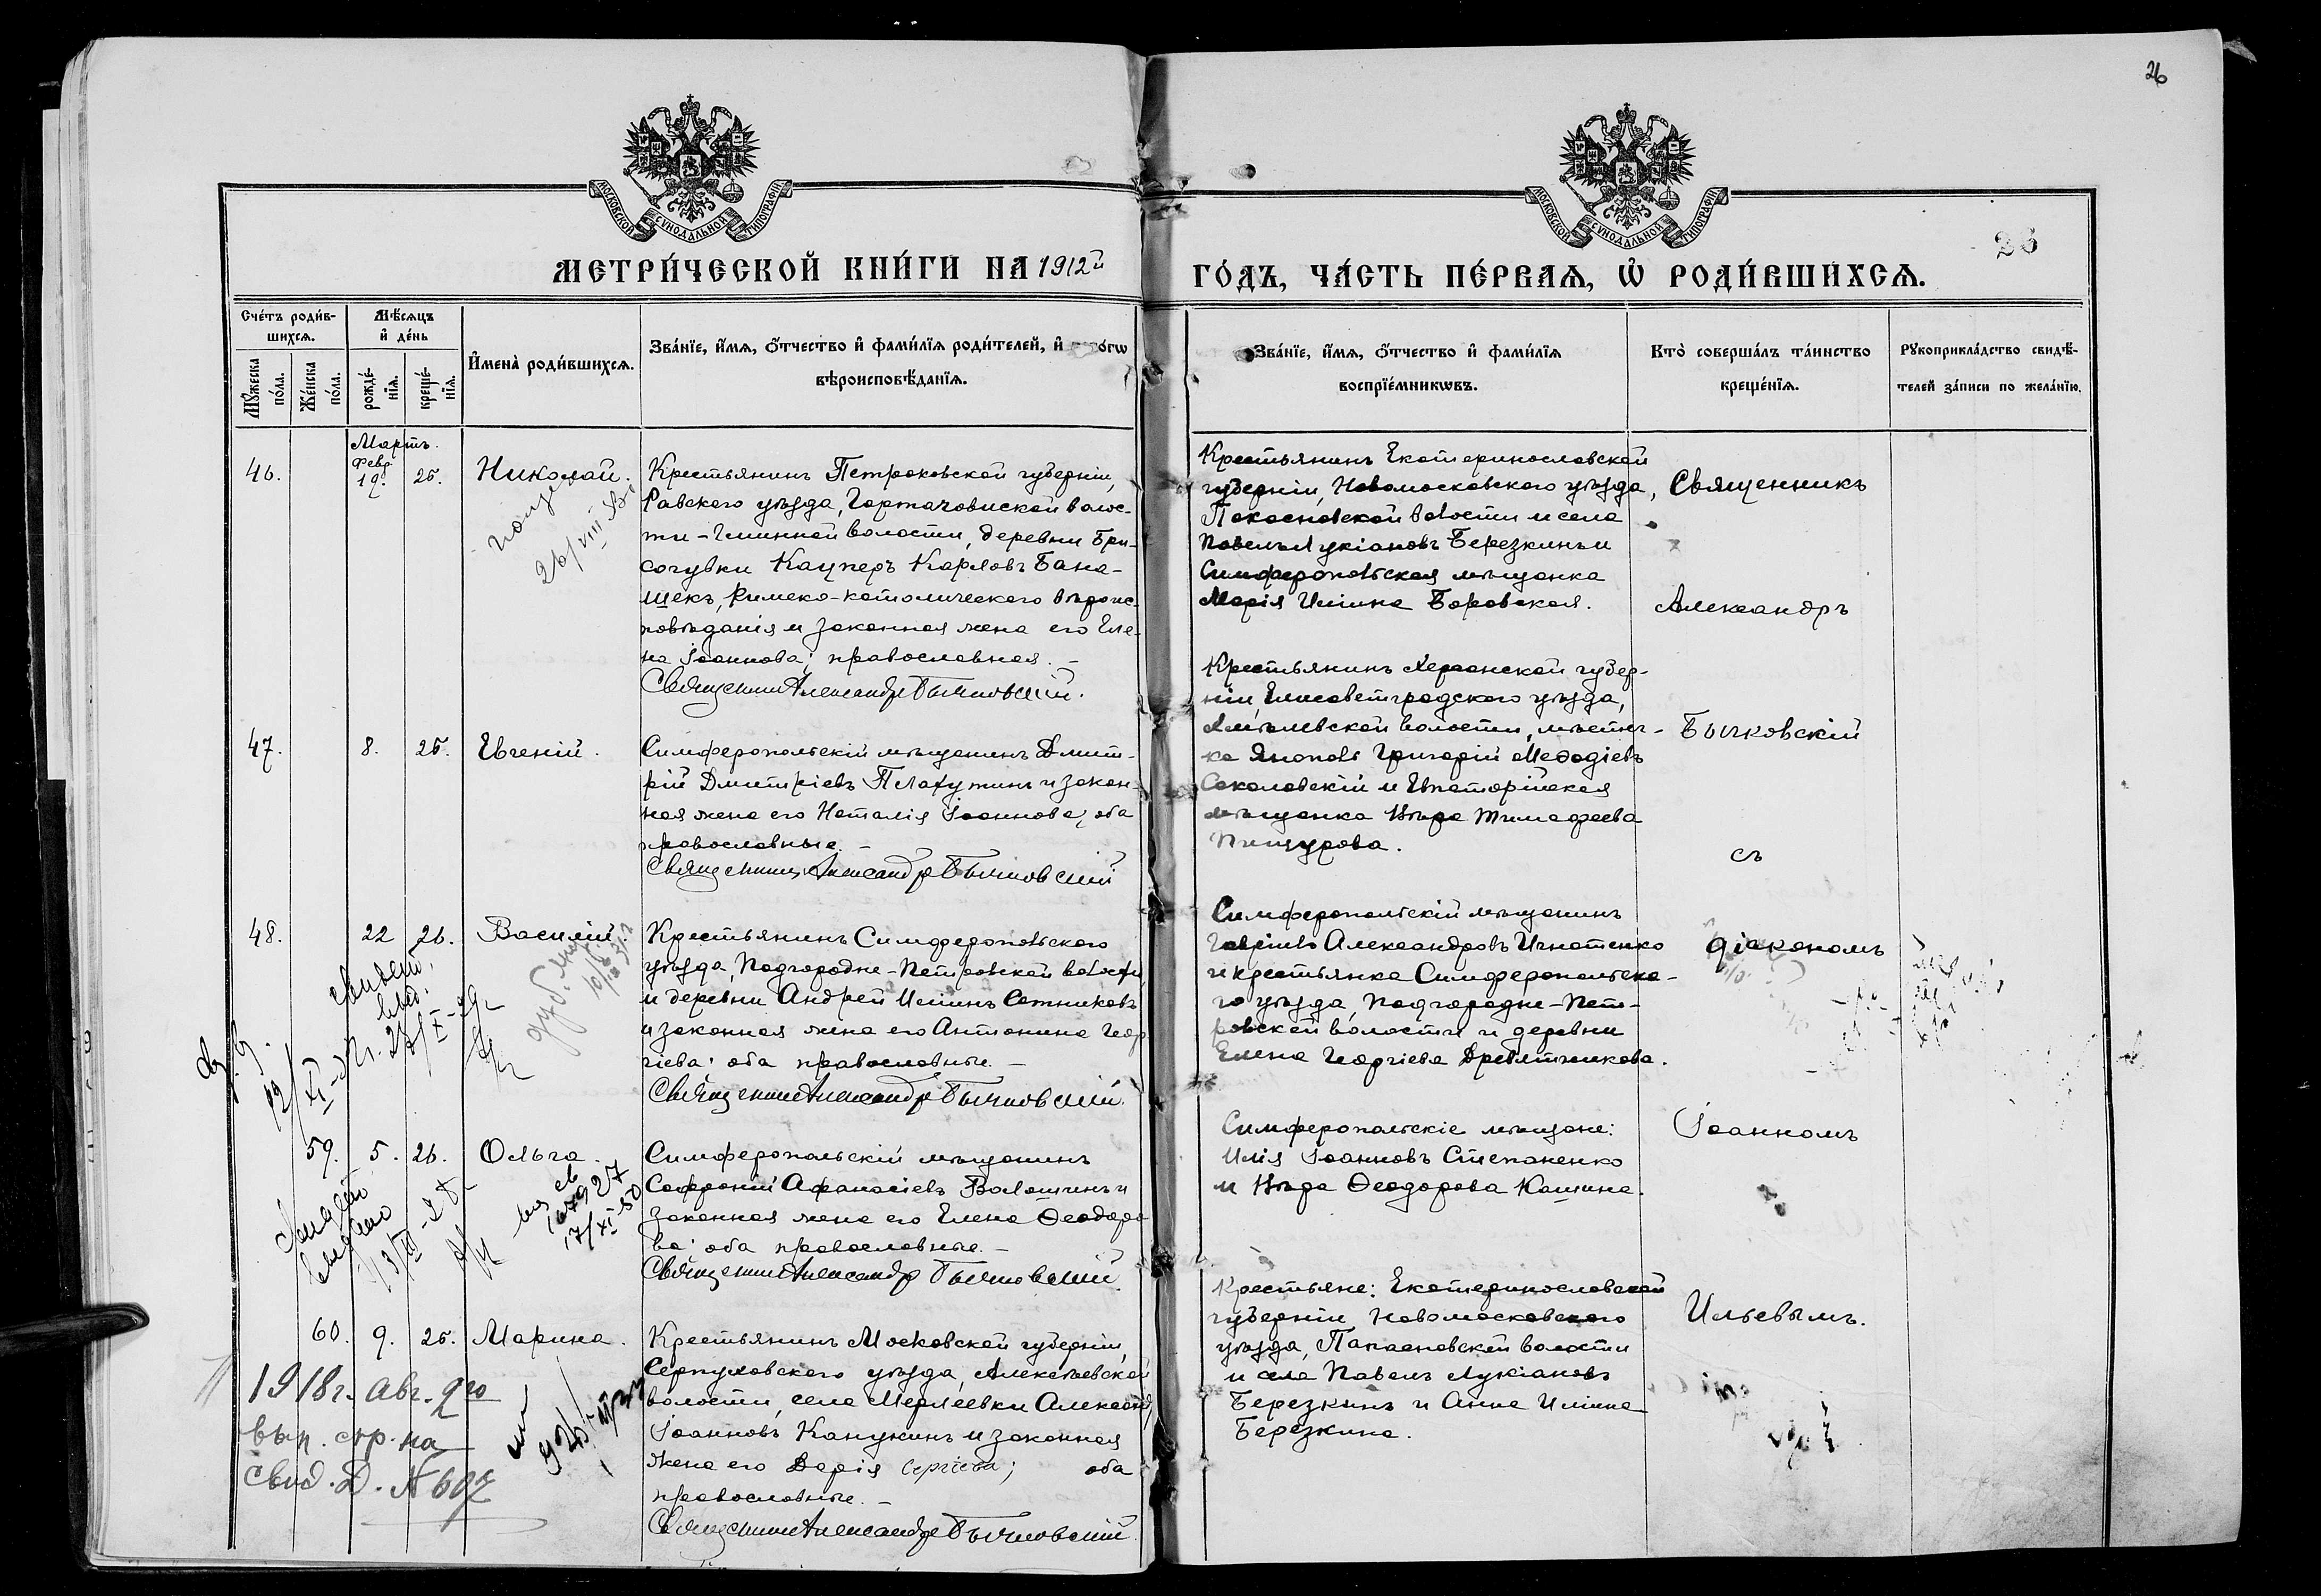 26
МОСКОВСКОЙ СѴНОДАЛЬНОЙ ТИПОГРАФІИ
МОСКОВСКОЙ СѴНОДАЛЬНОЙ ТИПОГРАФІИ
26
МЕТРИ́ЧЕСКОЙ КНИ́ГИ НА 1912й
ГО́ДЪ, ЧА́СТЬ ПЕ́РВАѦ, Ѡ РОДИ́ВШИХСѦ.
Сче́тъ роди́в-
шихсѧ.
Мѣ́сѧцъ
и҆ де́нь
Мꙋ́жеска
по́ла.
Же́нска
по́ла.
рожде́-
нїѧ.
креще́-
нїѧ.
И҆мена̀ роди́вшихсѧ.
Зва́нїе, и҆́мѧ, ѻ҆́тчество и҆ фами́лїѧ роди́телей, и҆
вѣроисповѣ́данїѧ.
Зва́нїе, и҆́мѧ, ѻ҆́тчество и҆ фами́лїѧ
воспрїе́мникѡвъ.
Кто̀ соверша́лъ та́инство
креще́нїѧ.
Рꙋкоприкла́дство свидѣ́-
телей за́писи по жела́нїю.
Мартъ.
46.
Февр.
19.
25.
Николай.
Крестьянинъ Петроковской губерніи,
Равского уѣзда,
волос-
ти – Гминной волости, деревни Бри-
согувки Кацперъ Карловъ Бана-
шекъ, Римско-католическаго вѣроис-
повѣданія и законная жена его Еле-
на Іоаннова; православная. –
Священникъ Александръ Бычковскій.
Крестьянинъ Екатеринославской
губерніи, Новомосковского уѣзда,
волости и села
Павелъ Лукіановъ Березкинъ и
Симферопольская мѣщанка
Марія Иліина Боровская.
Священникъ
Александръ
Бычковскій
съ
діакономъ
Іоанномъ
Ильевымъ.
26/VIII
47.
8.
25.
Евгеній.
Симферопольскій мѣщанинъ Дмит-
рій Дмитріевъ Плахутинъ и закон-
ная жена его Наталія Іоаннова; оба
православные. –
Священникъ Александръ Бычковскій
Крестьянинъ Херсонской губер-
ніи, Елисаветградского уѣзда,
волости, мѣстеч-
ка
Григорій Меѳодіевъ
Соколовскій и Евпаторійская
мѣщанка Вѣра Тимофеева
Пищурова.
48.
22
26.
Василій
Крестьянинъ Симферопольского
уѣзда, Подгородне-Петровской волости
и деревни Андрей Иліинъ Сотниковъ
и законная жена его Антонина Геор-
гіева; оба православные. –
Священникъ Александръ Бычковскій.
Симферопольскій мѣщанинъ
Гавріилъ Александровъ Игнатенко
и крестьянка Симферопольска-
го уѣзда, Подгородне-Пет-
ровской волости и деревни
Елена Георгіева Древятникова.
59.
5.
26.
Ольга.
Симферопольскій мѣщанинъ
Софроній Афанасіевъ Волошинъ и
законная жена его Елена Ѳеодоро-
ва; оба православные. –
Священникъ Александръ Бычковскій.
Симферопольскіе мѣщане:
Илія Іоанновъ Степаненко
и Вѣра Ѳеодорова Кашина.
17/XI-50
60.
9.
25.
Марина.
Крестьянинъ Московской губерніи,
Серпуховского уѣзда, Алексѣевской
волости, села
Александръ
Іоанновъ Канунинъ и законная
жена его Дарія Сергіева; оба
православные. –
Священникъ Александръ Бычковскій.
Крестьяне: Екатеринославской
губерніи, Новомосковского
уѣзда,
волости
и села Павелъ Лукіановъ
Березкинъ и Анна Иліина
Березкина.
1918 г. Авг. 9го
вып. стр. на
свид. Д. № 607